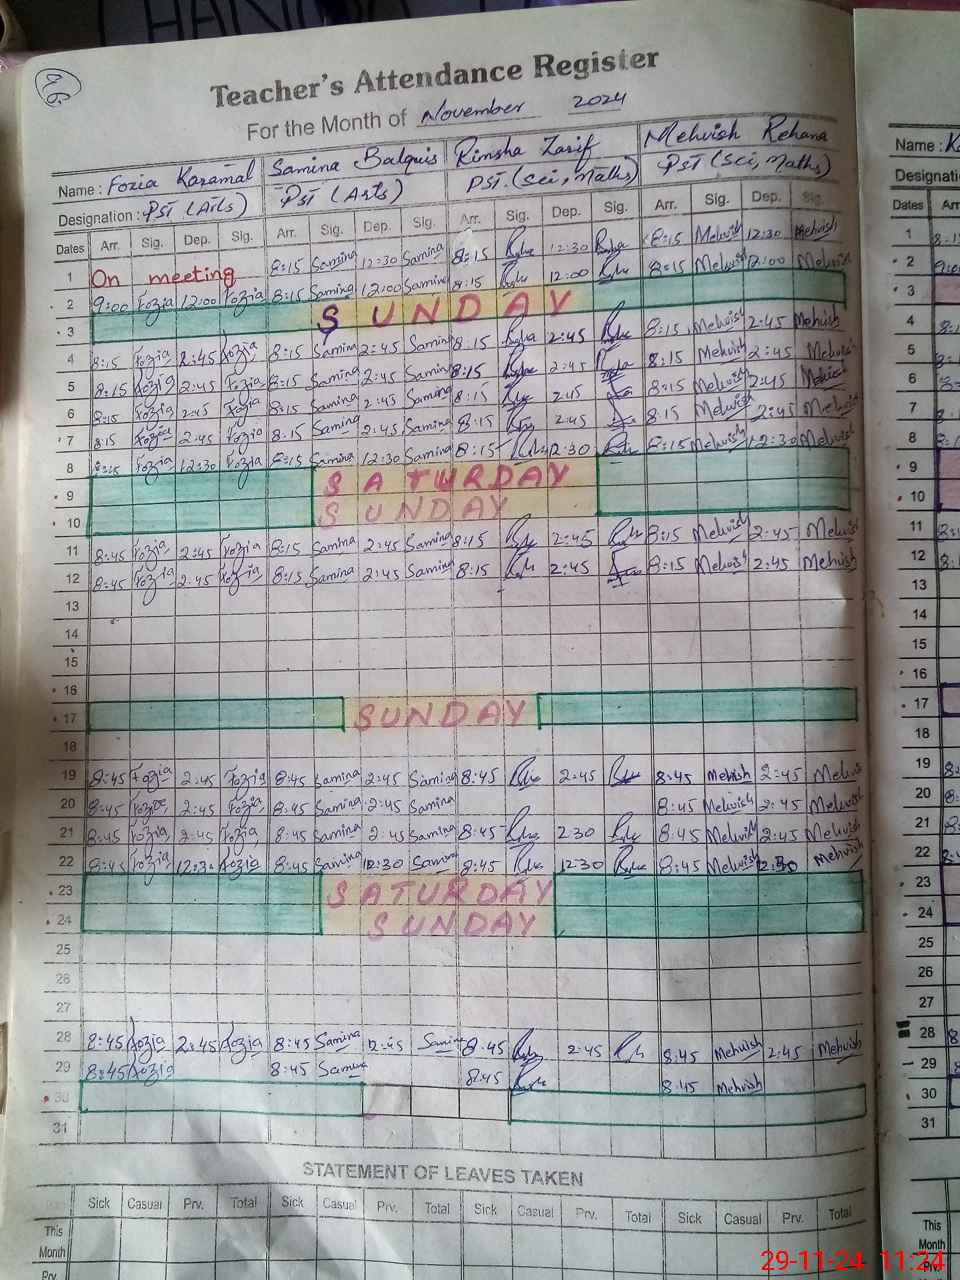 Teacher's Attendance Register
For the Month of November 2024
Name : Fozia Karamal Samina Balquis Rimsha Zarif Mehvish Rehana
Designation : PST (Arts) PST (Arts) PST. (Sci, Maths) PST (Sci, Maths)
Dates Arr. Sig. Dep. Sig. Arr. Sig. Dep. Sig. Arr. Sig. Dep. Sig. Arr. Sig. Dep. Sig.
1 On meeting 8:15 Samina 12:30 Samina 8:15 12:30 8:15 Mehvish 12:30 Mehvish
2 9:00 Fozia 12:00 Fozia 8:15 Samina 12:00 Samina 8:15 12:00 8:15 Mehvish 12:00 Mehvish
3 SUNDAY
4 8:15 Fozia 2:45 Fozia 8:15 Samina 2:45 Samina 8:15 2:45 8:15 Mehvish 2:45 Mehvish
5 8:15 Fozia 2:45 Fozia 8:15 Samina 2:45 Samina 8:15 2:45 8:15 Mehvish 2:45 Mehvish
6 8:15 Fozia 2:45 Fozia 8:15 Samina 2:45 Samina 8:15 2:45 8:15 Mehvish 2:45 Mehvish
7 8:15 Fozia 2:45 Fozia 8:15 Samina 2:45 Samina 8:15 2:45 8:15 Mehvish 2:45 Mehvish
8 8:15 Fozia 12:30 Fozia 8:15 Samina 12:30 Samina 8:15 12:30 8:15 Mehvish 12:30 Mehvish
9 SATURDAY
10 SUNDAY
11 8:45 Fozia 2:45 Fozia 8:15 Samina 2:45 Samina 8:15 2:45 8:15 Mehvish 2:45 Mehvish
12 8:45 Fozia 2:45 Fozia 8:15 Samina 2:45 Samina 8:15 2:45 8:15 Mehvish 2:45 Mehvish
13
14
15
16
17 SUNDAY
18
19 8:45 Fozia 2:45 Fozia 8:45 Samina 2:45 Samina 8:45 2:45 8:45 Mehvish 2:45 Mehvish
20 8:45 Fozia 2:45 Fozia 8:45 Samina 2:45 Samina 8:45 Mehvish 2:45 Mehvish
21 8:45 Fozia 2:45 Fozia 8:45 Samina 2:45 Samina 8:45 2:30 8:45 Mehvish 2:45 Mehvish
22 8:45 Fozia 12:30 Fozia 8:45 Samina 12:30 Samina 8:45 12:30 8:45 Mehvish 12:30 Mehvish
23 SATURDAY
24 SUNDAY
25
26
27
28 8:45 Fozia 2:45 Fozia 8:45 Samina 2:45 Samina 8:45 2:45 8:45 Mehvish 2:45 Mehvish
29 8:45 Fozia 8:45 Samina 8:45 8:45 Mehvish
30
31
STATEMENT OF LEAVES TAKEN
Sick Casual Prv. Total Sick Casual Prv. Total Sick Casual Prv. Total Sick Casual Prv. Total
This Month
Prv.
Name :
Designation
Dates Arr
1
2
3
4
5
6
7
8
9
10
11
12
13
14
15
16
17
18
19
20
21
22
23
24
25
26
27
28
29
30
31
This
Month
Prv.
29-11-24 11:24